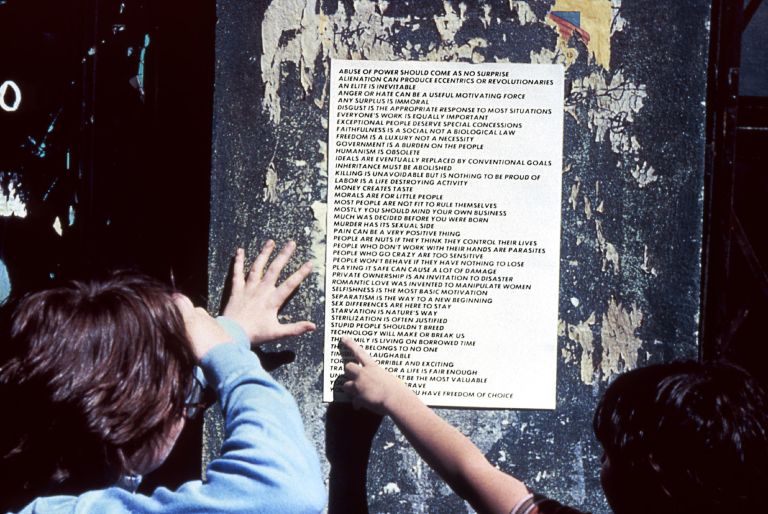 ABUSE OF POWER SHOULD COME AS NO SURPRISE
ALIENATION CAN PRODUCE ECCENTRICS OR REVOLUTIONARIES
AN ELITE IS INEVITABLE
ANGER OR HATE CAN BE A USEFUL MOTIVATING FORCE
ANY SURPLUS IS IMMORAL
DISGUST IS THE APPROPRIATE RESPONSE TO MOST SITUATIONS
EVERYONE'S WORK IS EQUALLY IMPORTANT
EXCEPTIONAL PEOPLE DESERVE SPECIAL CONCESSIONS
FAITHFULNESS IS A SOCIAL NOT A BIOLOGICAL LAW
FREEDOM IS A LUXURY NOT A NECESSITY
GOVERNMENT IS A BURDEN ON THE PEOPLE
HUMANISM IS OBSOLETE
IDEALS ARE EVENTUALLY REPLACED BY CONVENTIONAL GOALS
INHERITANCE MUST BE ABOLISHED
KILLING IS UNAVOIDABLE BUT IS NOTHING TO BE PROUD OF
LABOR IS A LIFE DESTROYING ACTIVITY
MONEY CREATES TASTE
MORALS ARE FOR LITTLE PEOPLE
MOST PEOPLE ARE NOT FIT TO RULE THEMSELVES
MOSTLY YOU SHOULD MIND YOUR OWN BUSINESS
MUCH WAS DECIDED BEFORE YOU WERE BORN
MURDER HAS ITS SEXUAL SIDE
PAIN CAN BE A VERY POSITIVE THING
PEOPLE ARE NUTS IF THEY THINK THEY CONTROL THEIR LIVES
PEOPLE WHO DON'T WORK WITH THEIR HANDS ARE PARASITES
PEOPLE WHO GO CRAZY ARE TOO SENSITIVE
PEOPLE WON'T BEHAVE IF THEY HAVE NOTHING TO LOSE
PLAYING IT SAFE CAN CAUSE A LOT OF DAMAGE
PRIVATE OWNERSHIP IS AN INVITATION TO DISASTER
ROMANTIC LOVE WAS INVENTED TO MANIPULATE WOMEN
SELFISHNESS IS THE MOST BASIC MOTIVATION
SEPARATISM IS THE WAY TO A NEW BEGINNING
SEX DIFFERENCES ARE HERE TO STAY
STARVATION IS NATURE'S WAY
STERILIZATION IS OFTEN JUSTIFIED
STUPID PEOPLE SHOULDN'T BREED
TECHNOLOGY WILL MAKE OR BREAK US
FAMILY IS LIVING ON BORROWED TIME
BELONGS TO NO ONE
LAUGHABLE
HORRIBLE AND EXCITING
FOR A LIFE IS FAIR ENOUGH
BE THE MOST VALUABLE
YOU HAVE FREEDOM OF CHOICE